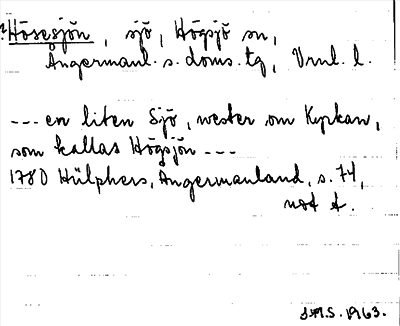 ? Hösesjön, sjö, Högsjö sn,
Ångermanl. s. doms. tg, Vrnl. l.
--- en liten Sjö, wester om Kyrkan,
som kallas Högsjön ---
1780 Hülphers, Ångermanland, s. 74,
not t.
1963.